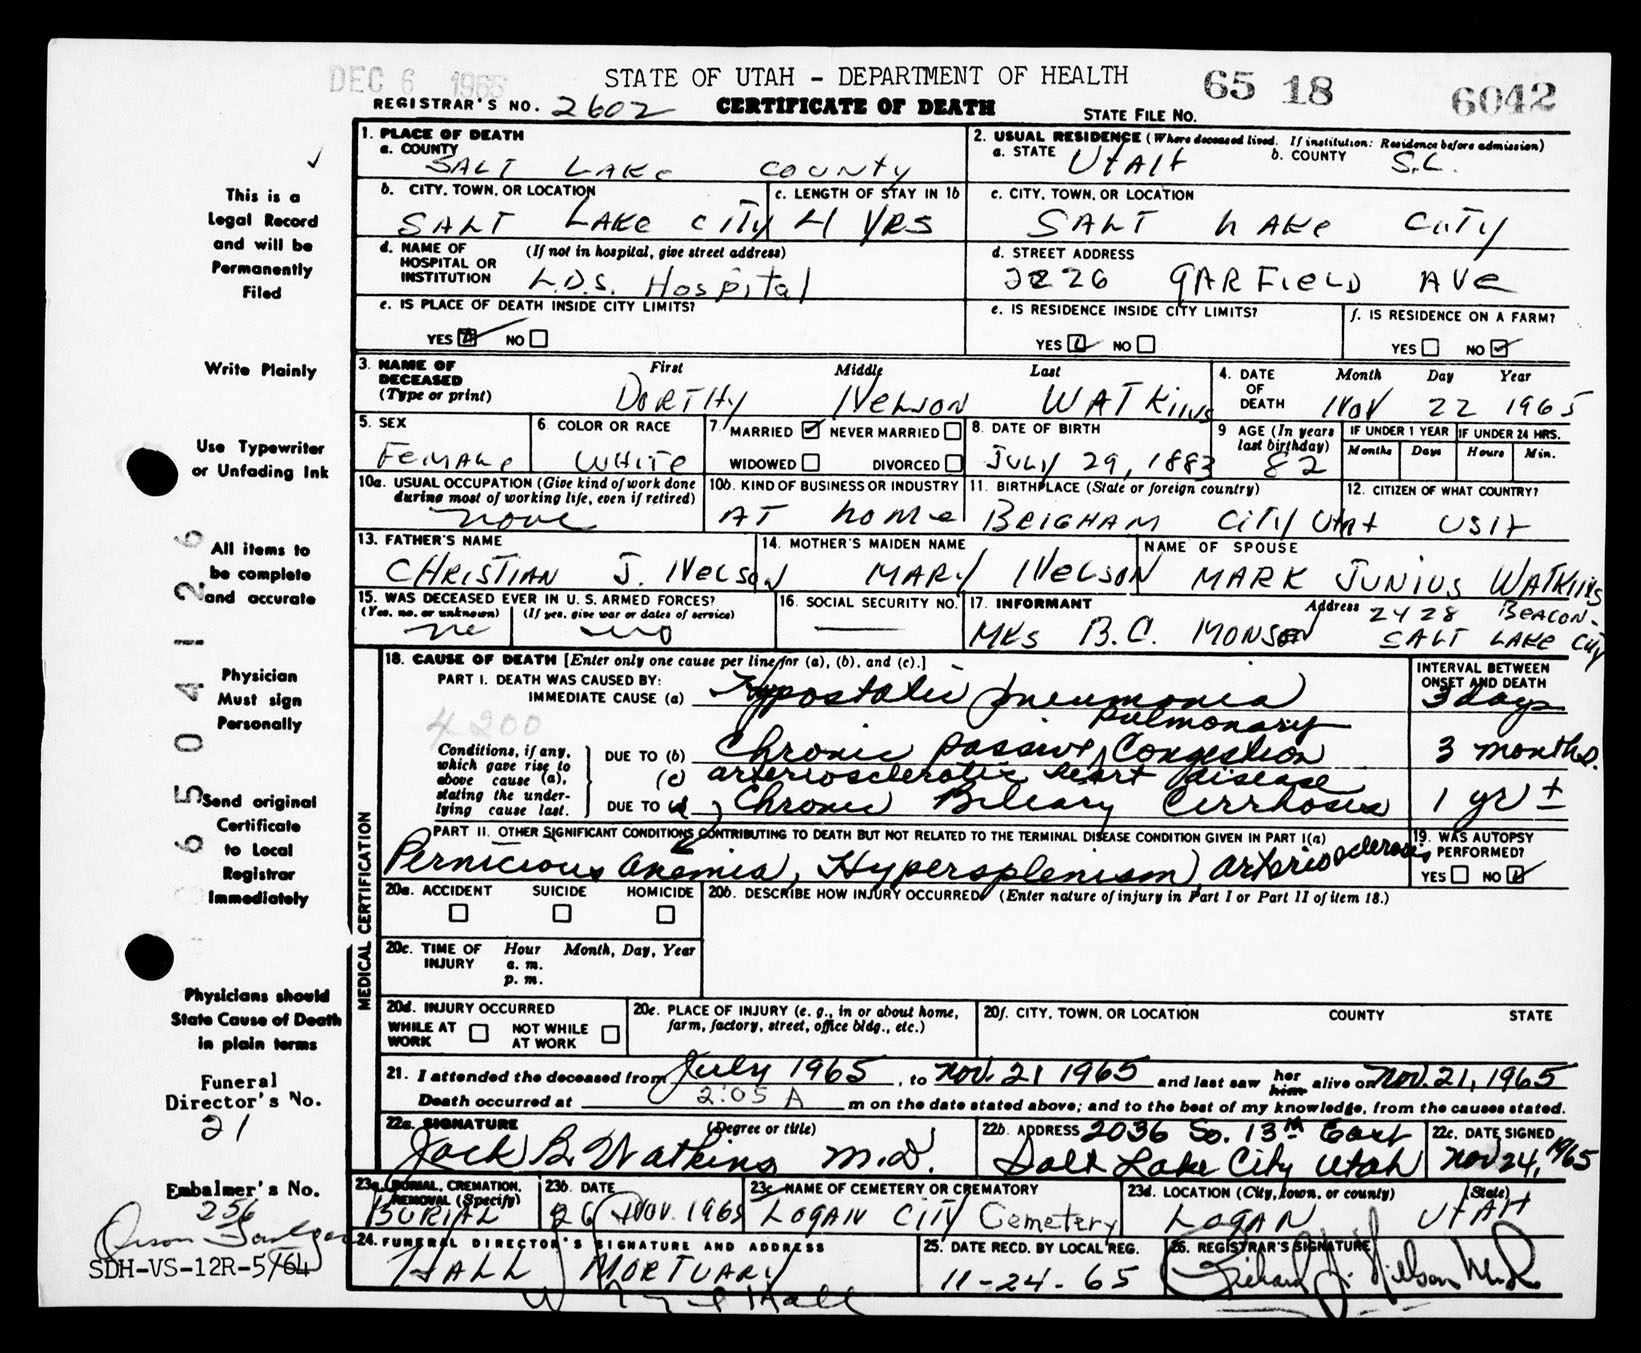 DEC 6 1965
STATE OF UTAH - DEPARTMENT OF HEALTH
65 18 6042
REGISTRAR'S NO. 2602 CERTIFICATE OF DEATH STATE FILE NO.
This is a
Legal Record
and will be
Permanently
Filed
Write Plainly
Use Typewriter
or Unfading Ink
All items to
be complete
and accurate
Physician
Must sign
Personally
Send original
Certificate
to Local
Registrar
Immediately
Physicians should
State Cause of Death
in plain terms
Funeral
Director's No.
21
Embalmer's No.
256
SDH-VS-12R-5/64
6504126
1. PLACE OF DEATH
a. COUNTY
SALT LAKE COUNTY
2. USUAL RESIDENCE (Where deceased lived. If institution: Residence before admission)
a. STATE UTAH b. COUNTY S.L.
b. CITY, TOWN, OR LOCATION
SALT LAKE CITY
c. LENGTH OF STAY IN 1b
41 YRS
c. CITY, TOWN, OR LOCATION
SALT LAKE CITY
d. NAME OF HOSPITAL OR INSTITUTION (If not in hospital, give street address)
L.D.S. Hospital
d. STREET ADDRESS
2226 GARFIELD AVE
e. IS PLACE OF DEATH INSIDE CITY LIMITS?
YES NO
e. IS RESIDENCE INSIDE CITY LIMITS?
YES NO
f. IS RESIDENCE ON A FARM?
YES NO
3. NAME OF DECEASED (Type or print) First Middle Last
DORTHY NELSON WATKINS
4. DATE OF DEATH Month Day Year
NOV 22 1965
5. SEX
FEMALE
6. COLOR OR RACE
WHITE
7. MARRIED NEVER MARRIED
WIDOWED DIVORCED
8. DATE OF BIRTH
JULY 29, 1883
9 AGE (In years last birthday)
82
IF UNDER 1 YEAR IF UNDER 24 HRS.
Months Days Hours Min.
10a. USUAL OCCUPATION (Give kind of work done during most of working life, even if retired)
none
10b. KIND OF BUSINESS OR INDUSTRY
AT home
11. BIRTHPLACE (State or foreign country)
BRIGHAM CITY UTAH
12. CITIZEN OF WHAT COUNTRY?
USA
13. FATHER'S NAME
CHRISTIAN J. NELSON
14. MOTHER'S MAIDEN NAME
MARY NELSON
NAME OF SPOUSE
MARK JUNIUS WATKINS
15. WAS DECEASED EVER IN U.S. ARMED FORCES?
(Yes, no, or unknown) (If yes, give war or dates of service)
no no
16. SOCIAL SECURITY NO.
17. INFORMANT Address
MRS B.C. MONSON 2428 BEACON-
SALT LAKE City
MEDICAL CERTIFICATION
18. CAUSE OF DEATH [Enter only one cause per line for (a), (b), and (c).]
INTERVAL BETWEEN ONSET AND DEATH
PART I. DEATH WAS CAUSED BY:
IMMEDIATE CAUSE (a) Hypostatic pneumonia 3 days
4200
Conditions, if any, which gave rise to above cause (a), stating the underlying cause last.
DUE TO (b) Chronic passive pulmonary Congestion 3 months.
(c) arteriosclerotic heart disease
DUE TO Chronic Biliary Cirrhosis 1 yr ±
PART II. OTHER SIGNIFICANT CONDITIONS CONTRIBUTING TO DEATH BUT NOT RELATED TO THE TERMINAL DISEASE CONDITION GIVEN IN PART I(a)
Pernicious anemia, Hypersplenism, arteriosclerosis
19. WAS AUTOPSY PERFORMED?
YES NO
20a. ACCIDENT SUICIDE HOMICIDE
20b. DESCRIBE HOW INJURY OCCURRED (Enter nature of injury in Part I or Part II of item 18.)
20c. TIME OF INJURY Hour Month, Day, Year
a. m.
p. m.
20d. INJURY OCCURRED
WHILE AT WORK NOT WHILE AT WORK
20e. PLACE OF INJURY (e. g., in or about home, farm, factory, street, office bldg., etc.)
20f. CITY, TOWN, OR LOCATION COUNTY STATE
21. I attended the deceased from July 1965, to Nov. 21 1965 and last saw her him alive on Nov. 21, 1965
Death occurred at 2:05 A m on the date stated above; and to the best of my knowledge, from the causes stated.
22a. SIGNATURE (Degree or title)
Jack B. Watkins M.D.
22b. ADDRESS 2036 So. 13th East
Salt Lake City Utah
22c. DATE SIGNED
Nov 24, 1965
23a. BURIAL, CREMATION, REMOVAL (Specify)
BURIAL
23b. DATE
26 Nov. 1965
23c NAME OF CEMETERY OR CREMATORY
LOGAN CITY Cemetery
23d. LOCATION (City, town, or county) (State)
LOGAN UTAH
24. FUNERAL DIRECTOR'S SIGNATURE AND ADDRESS
HALL MORTUARY
Hall
25. DATE RECD. BY LOCAL REG.
11-24-65
26. REGISTRAR'S SIGNATURE